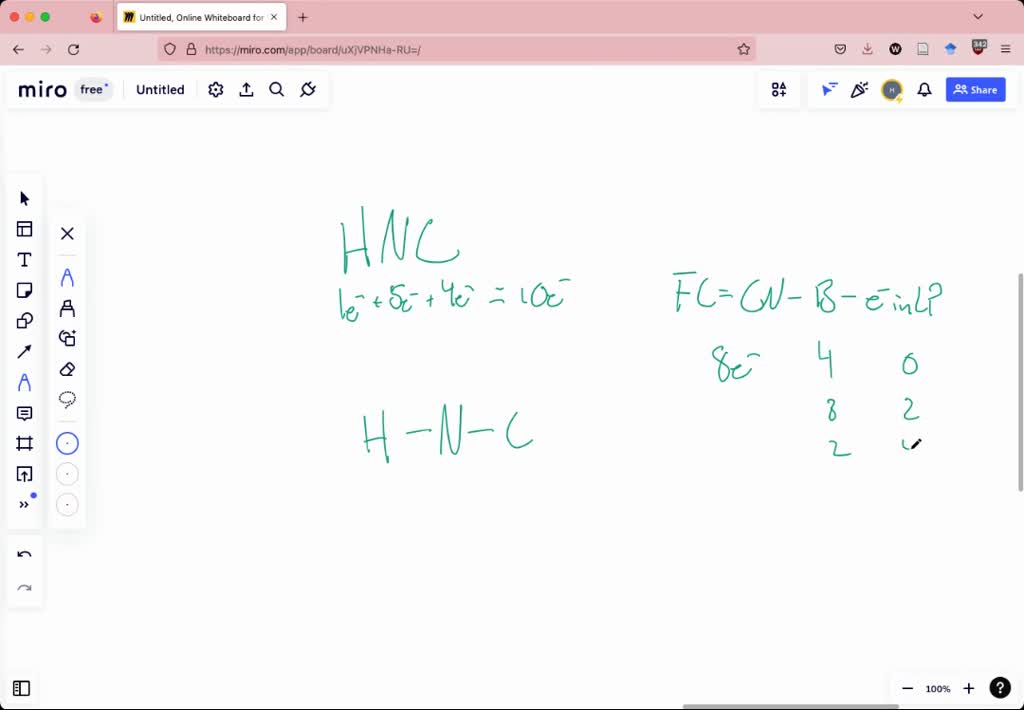 Untitled, Online Whiteboard for
https://miro.com/app/board/uXjVPNHa-RU=/
342
miro free Untitled
H
Share
HNC
1e⁻ + 5e⁻ + 4e⁻ = 10e⁻
FC = CN - B - e⁻ in LP
8e⁻ 4 0
3 2
2
H - N - C
100%